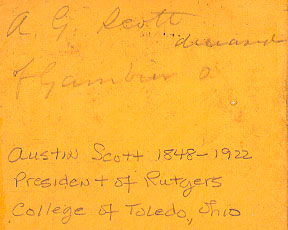 A. G. Scott
deceased
of Gambier O
Austin Scott 1848-1922
President of Rutgers
College of Toledo, Ohio